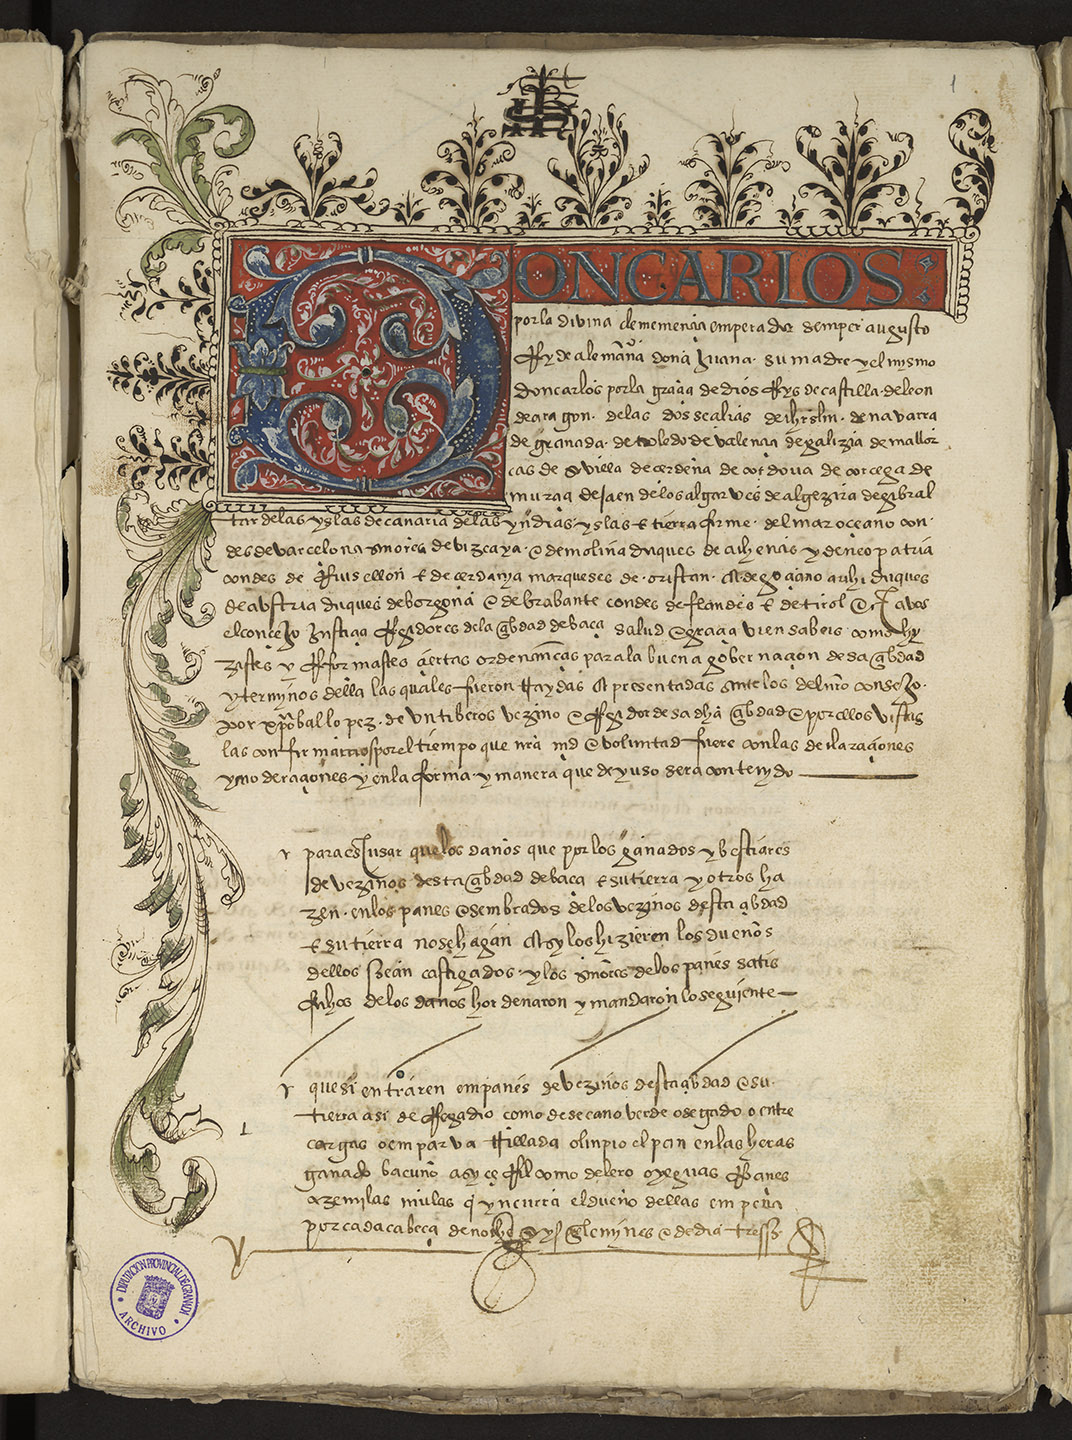 1
DON CARLOS
por la divina clemencia emperador semper augusto
Rey de alemaña doña Juana su madre y el mysmo
don carlos por la graçia de dios Reys de castilla de leon
de aragon de las dos seçilias de ihrslm de navarra
de granada de toledo de valençia de galizia de mallor
cas de sevilla de cerdeña de cordova de corcega de
murçia de Jaen de los algarves de algezira de gibral
tar de las yslas de canaria de las yndias yslas e tierra firme del mar oceano con
des de varcelona señores de vizcaya e de molina duques de athenas y de neopatria
condes de Ruisellon e de cerdanya marqueses de oristan e de goçiano archiduques
de avstria duques de borgoña e de brabante condes de flandes e de tirol
el conçejo Justiçia Regidores de la çibdad de baça salud e graçia vien sabeis como hy
zistes y Reformastes çiertas ordenanças para la buena gobernaçion desa çibdad
y termynos della las quales fueron traydas e presentadas ante los del nro consejo
por xpobal lopez de vntiberos vezino e Regidor desa dha çibdad e por ellos vistas
las confirmamos por el tiempo que nra md e voluntad fuere con las declaraçiones
y moderaçiones y en la forma y manera que de yuso sera contenydo
para escusar que los daños que por los ganados y bestiares
de vezinos desta çibdad de baça e su tierra y otros ha
zen en los panes e sembrados de los vezinos desta çibdad
e su tierra no se hagan e sy los hizieren los dueños
dellos sean castigados y los señores de los panes satis
fechos de los daños hordenaron y mandaron lo seguiente
que si entraren en panes de vezinos desta çibdad e su
tierra asi de Regadio como de secano verde o segado o entre
1
cargas o en parva trillada o linpio el pan en las heras
ganado bacuno asy çeRil como de lero o yeguas
azemilas mulas q yncurra el dueño dellas en pena
por cada cabeça de noche seys çelemynes e de dia tres
DIPUTACION PROVINCIAL DE GRANADA
ARCHIVO